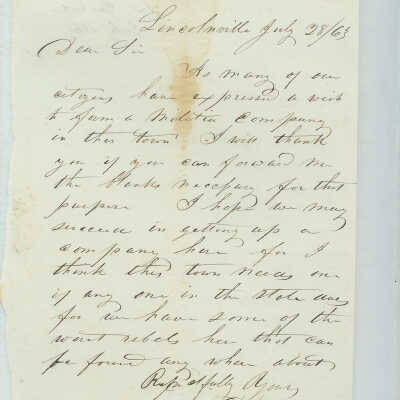 Lincolnville July 28/63
Dear Sir
As many of our
citizens have expressed a wish
to form a Militia Company
in this town I will thank
you if you can forward me
the blanks necessary for that
purpose I hope we may
succeed in getting up a
company here for I
think this town needs one
if any one in the state does
for we have some of the
worst rebels here that can
be found any where about
Respectfully Yours